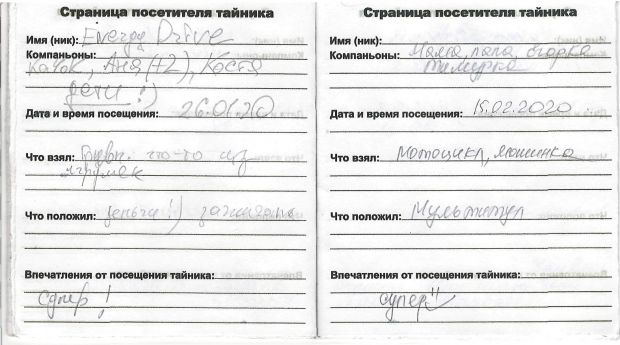 Страница посетителя тайника
Имя (ник): Energy Drive
Компаньоны:
Каток, Аня (+2), Костя
дети :)
Дата и время посещения: 26.01.20
Что взял: что-то из
игрушек
Что положил: деньги :)
Впечатления от посещения тайника:
супер!
Страница посетителя тайника
Имя (ник):
Компаньоны: Мама, папа, Егорка
Тимурка
Дата и время посещения: 15.02.2020
Что взял: мотоцикл, машинка
Что положил: Мультитул
Впечатления от посещения тайника:
супер!!